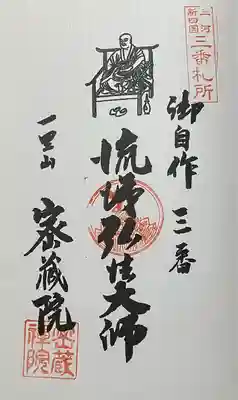 三河新四国
三番札所
御自作 三番
流涕弘法大師
一里山
密藏院
密蔵
禅院